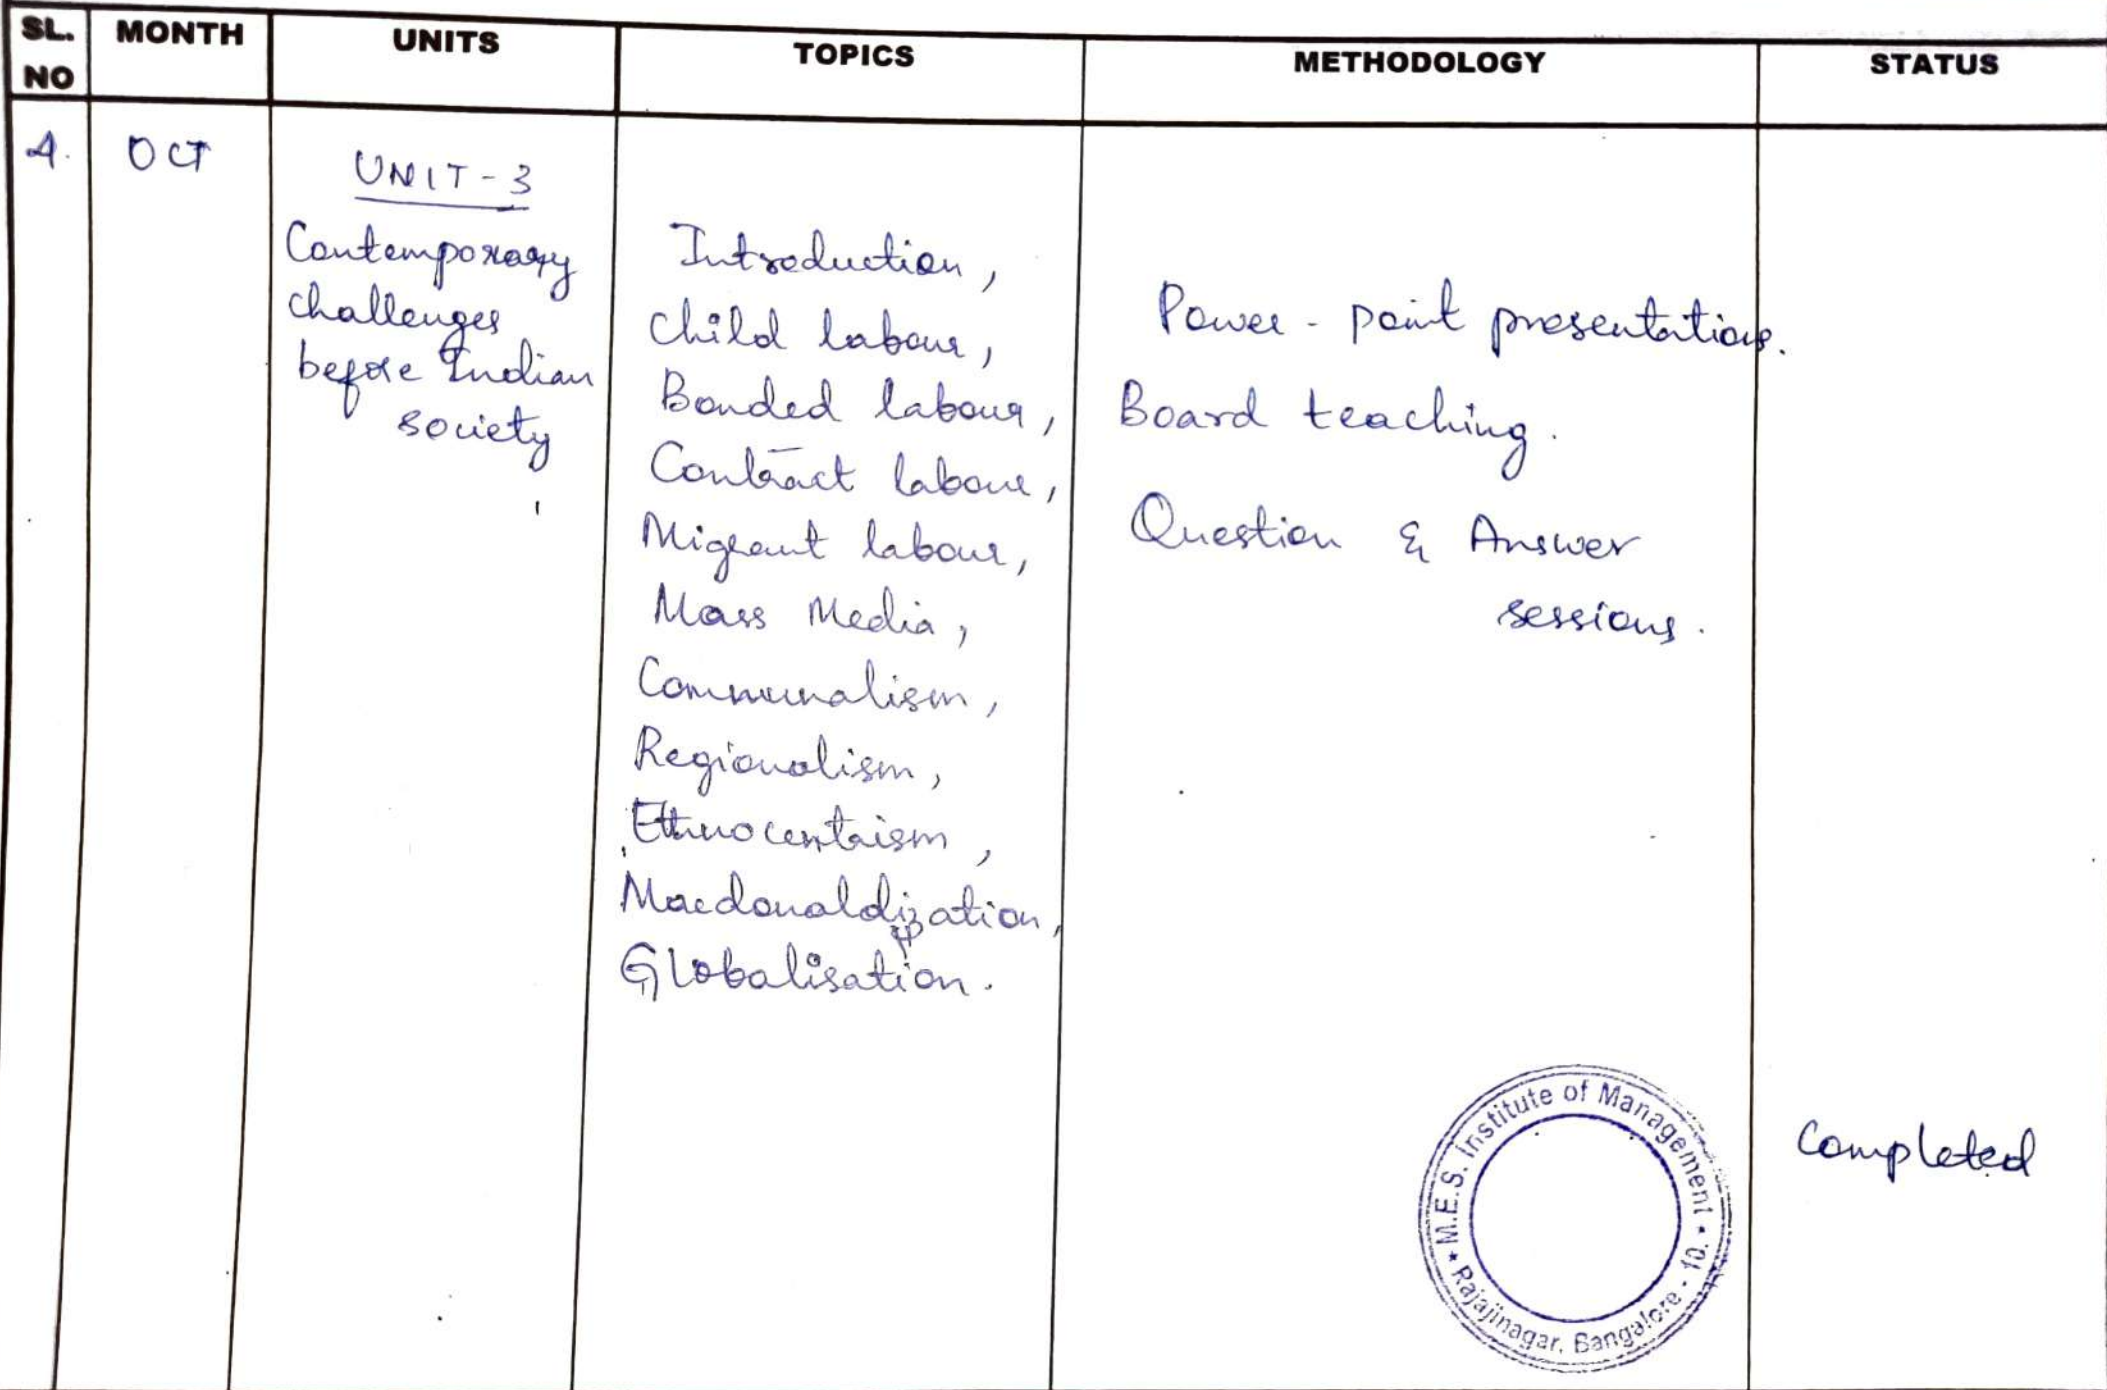 SL. NO
MONTH
UNITS
TOPICS
METHODOLOGY
STATUS
4.
OCT
UNIT-3
Contemporary
challenges
before Indian
society
Introduction,
Child labour,
Bonded labour,
Contract labour,
Migrant labour,
Mass Media,
Communalism,
Regionalism,
Ethnocentrism,
Macdonaldization,
Globalisation.
Power - point presentations.
Board teaching.
Question & Answer
sessions.
Completed
★ M.E.S. Institute of Management ★
Rajajinagar, Bangalore - 10.